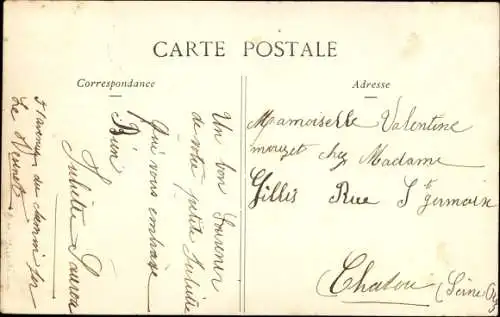 CARTE POSTALE
Correspondance
Adresse
Un bon Souvenir
de votre petite Juliette
Qui vous embrasse
Bien
Juliette
avenue du chemin fer
Le Vesinet
Mamoiselle Valentine
mouzet chez Madame
Gillis Rue St germain
Chatou
(Seine Oise